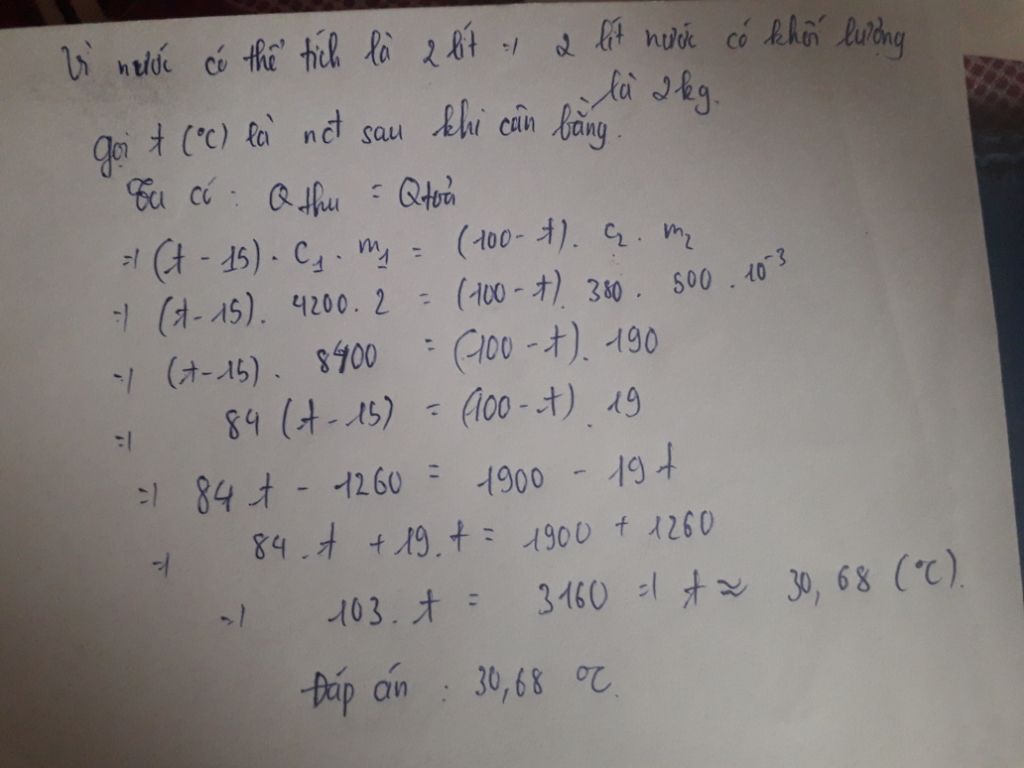 Vì nước có thể tích là 2 lít => 2 lít nước có khối lượng
là 2kg.
Gọi t (°C) là nđ sau khi cân bằng.
Ta có : Q thu = Q toả
=> (t - 15) . C₁ . m₁ = (100 - t) . C₂ . m₂
=> (t - 15) . 4200 . 2 = (100 - t) . 380 . 500 . 10⁻³
=> (t - 15) . 8400 = (100 - t) . 190
=> 84 (t - 15) = (100 - t) . 19
=> 84 t - 1260 = 1900 - 19 t
=> 84 . t + 19 . t = 1900 + 1260
=> 103 . t = 3160 => t ≈ 30,68 (°C).
Đáp án : 30,68 °C.